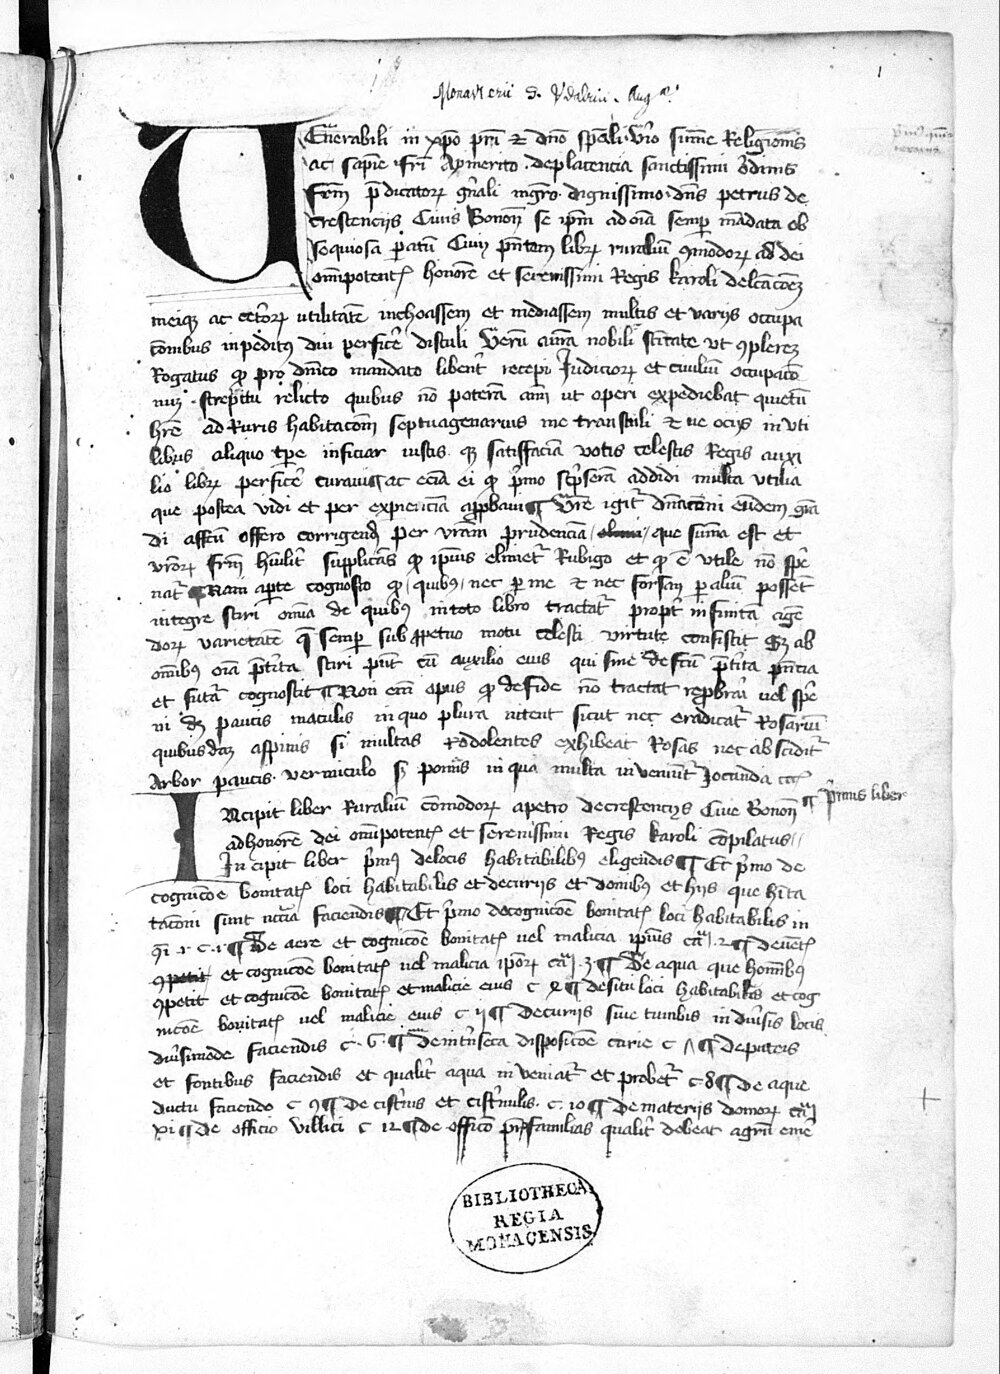 Monasterii S. Vdalrici. Aug.ᵃᵉ
1
VEn̄erabili in xp̄o pr̄i ⁊ dn̄o sp̄ali viro sum̄e Religionis
ac sapie fr̄i Aymerico de placencia sanctissimi ordinis
frm̄ p̄dicatoꝝ gn̄ali mgr̄o dignissimo dn̄s petrus de
crescencijs Ciuis Bonon̄ se ip̄m ad oīa semp̄ mādata ob
sequiosa paratū Cum librꝝ ruraliū ꝯmodoꝝ ad dei
om̄ipotent̄ honorē et serenissimi Regis karoli
meiqꝫ ac cet̄oꝝ utilitatē inchoassem et mediassem multis et varijs occupa
c̄onibus inpeditus diu perficer̄ distuli Verū
Rogatus ꝙ pro dn̄ico mandato libent̄ recepi Judicioꝝ et ciuiliū occupac̄o
strepitu relicto quibus nō poterā ut operi expediebat quietū
ad Ruris habitac̄om septuagenarius me transtuli ⁊ ne ocijs inuti
libus aliquo tp̄e inficiar iustis qꝫ satisfaciā votis celestis Regis auxi
lio librꝫ perficer̄ curaui ¶ ac eciā ei ꝙ p̄mo sc̄pserā addidi multa vtilia
que postea vidi et per experienciā ap̄probaui ¶ Vr̄e igit̄
offero corrigend̄ per vr̄am prudenciā que sum̄a est et
vr̄oꝝ frm̄ humilit̄ supplicās ꝙ ip̄ius elimet̄ Rubigo et ꝙ ē vtile nō sp̄e
nat̄ ¶ Nam aperte cognosco ꝙ quibus nec per me ⁊ nec forsan p̄ aliū possēt
integre sciri om̄ia de quibus in toto libro tractat̄ propt̄ infinita agen
doꝝ varietatē que semp̄ sub ꝑpetuo motu celesti virtute consistit Sꝫ ab
om̄ibus oīa p̄t̄ita sciri pn̄t cū auxilio eius qui sine defctū p̄t̄ita pn̄cia
et futur̄a cognoscit ¶ Non em̄ opus ꝙ de fide nō tractat reprobrari vel sp̄e
ni dꝫ paucis maculis in quo plura nitent sicut nec eradicat̄ Rosariū
quibusdaꝫ aspinis si multas Redolentes exhibeat Rosas nec abscidit̄
arbor paucis vermiculo sꝫ pomis in qua multa inueniūt̄ Jocunda
¶ p̄mus liber
INcipit liber Ruraliū com̄odoꝝ a petro de crescencijs Ciue Bonon̄
ad honorē dei om̄ipotent̄ et serenissimi Regis karoli cōpilatus
Incipit liber p̄mus de locis habitabilibus eligendis ¶ Et p̄mo de
cognic̄oe bonitat̄ loci habitabilis et de curijs et domibus et hijs que
sunt nc̄cia faciendis ¶ Et p̄mo de cognic̄oe bonitat̄ loci habitabilis in
c. 1 ¶ De aere et cognic̄oe bonitat̄ vel malicia ip̄ius ca. 2 ¶ De uent̄
et cognic̄oe bonitat̄ vel malicia ip̄oꝝ ca. 3 ¶ De aqua que hom̄ibus
ꝯpetit et cognic̄oe bonitat̄ et malicie eius c 4 ¶ De situ loci habitabilis et cog
nic̄oe bonitat̄ vel malicie eius c ij ¶ De curijs siue tumbis in diuersis locis
diu̇simode faciendis c. 6. ¶ De intrinseca disposic̄oe curie c 7 ¶ De puteis
et fontibus faciendis et qualit̄ aqua inueniat̄ et probet̄ c. 8 ¶ De aque
ductu faciendo c 9 ¶ De cist̄nis et cist̄nulis. c. 10 ¶ De materijs domoꝝ ca
xi ¶ De officio villici c 12 ¶ De officio pr̄isfamilias qualit̄ debeat agrū emer̄
BIBLIOTHECA
REGIA
MONACENSIS